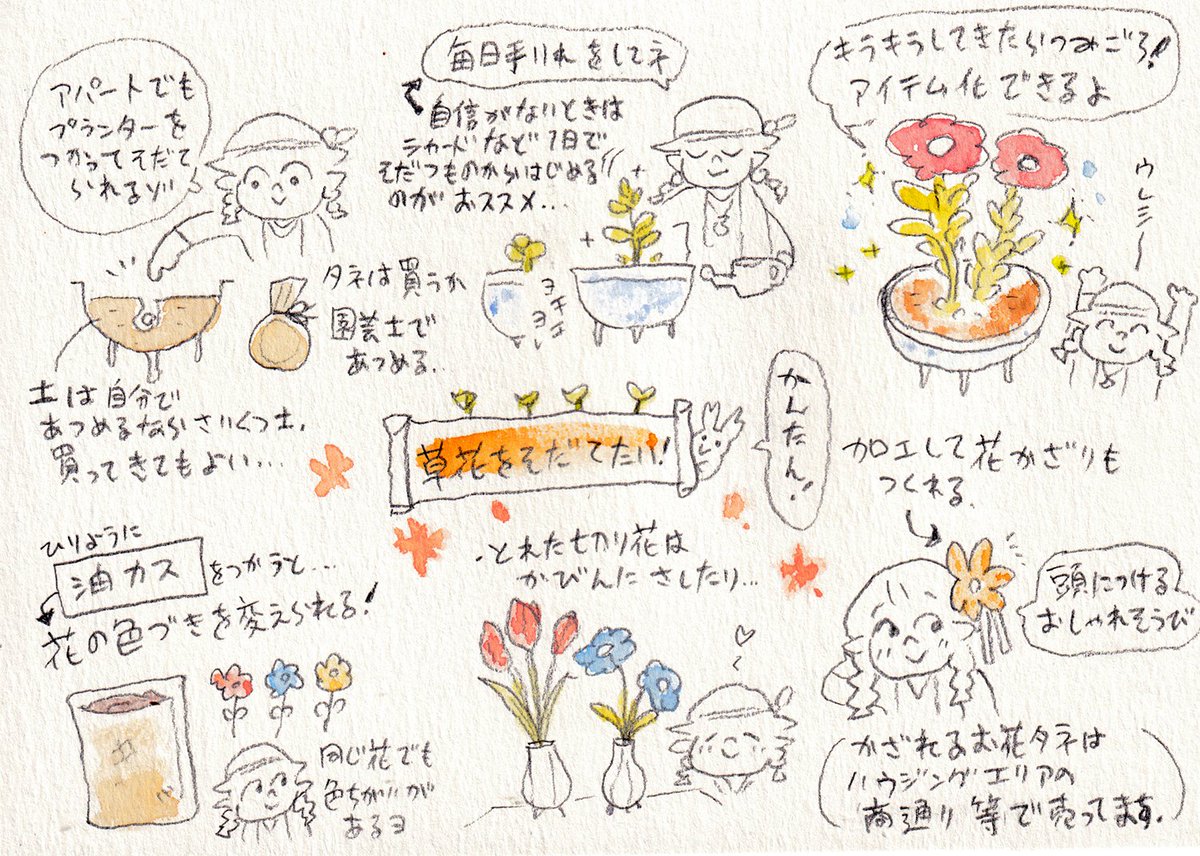 アパートでも
プランターを
つかってそだて
られるゾ
タネは買うか
園芸士で
あつめる.
土は自分で
あつめるならさいくつ士.
買ってきてもよい…
毎日手入れをしてネ
自信がないときは
ラカードなど1日で
そだつものからはじめる
のがおススメ…
ヨチ
ヨチ
キラキラしてきたらつみごろ!
アイテム化できるよ
ウレシー
草花をそだてたい!
かんたん!
ひりように
油カス
をつかうと…
花の色づきを変えられる!
同じ花でも
色ちがいが
あるヨ
・とれた切り花は
かびんにさしたり…
加工して花かざりも
つくれる.
頭につける
おしゃれそうび
かざれるお花タネは
ハウジングエリアの
商通り等で売ってます.